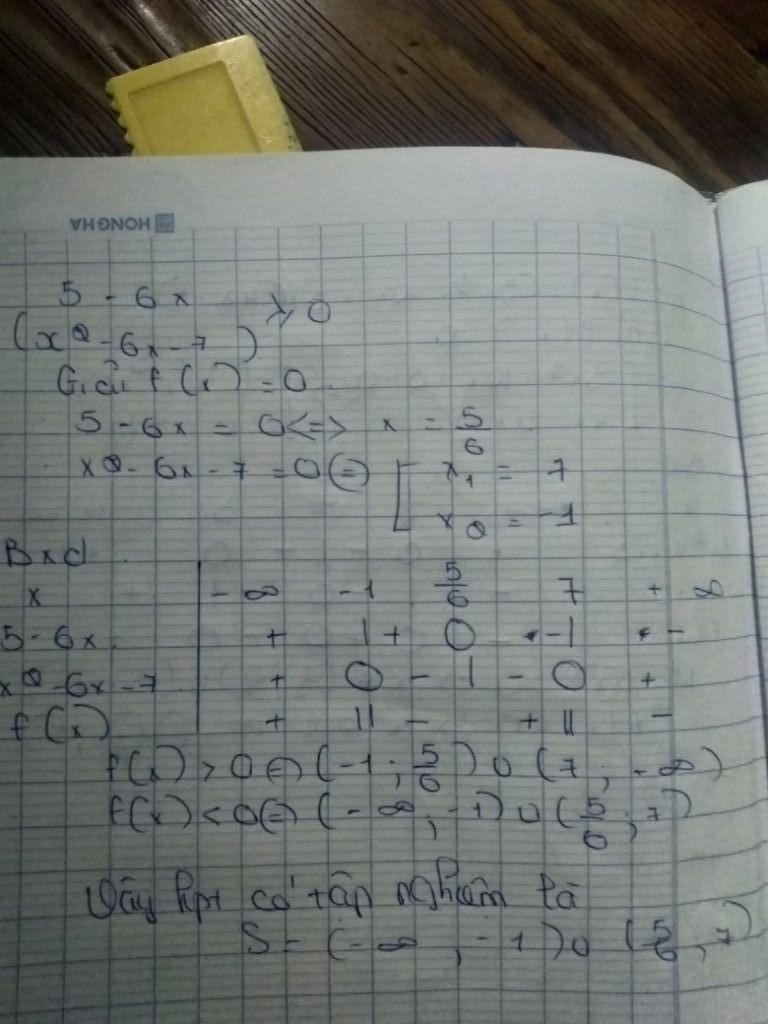 HONG HA
5 - 6x
(x² - 6x - 7) ⩾ 0
Giải f(x) = 0
5 - 6x = 0 <=> x = 5/6
x² - 6x - 7 = 0 <=> [ x₁ = 7
x₂ = -1
Bxd
x | -∞ -1 5/6 7 +∞
5 - 6x | + | + 0 - | -
x² - 6x - 7 | + 0 - | - 0 +
f(x) | + || - + || -
f(x) > 0 <=> (-1; 5/6) ∪ (7; -∞)
f(x) < 0 <=> (-∞, -1) ∪ (5/6; 7)
Vậy hpt có tập nghiệm là
S = (-∞, -1) ∪ (5/6, 7)